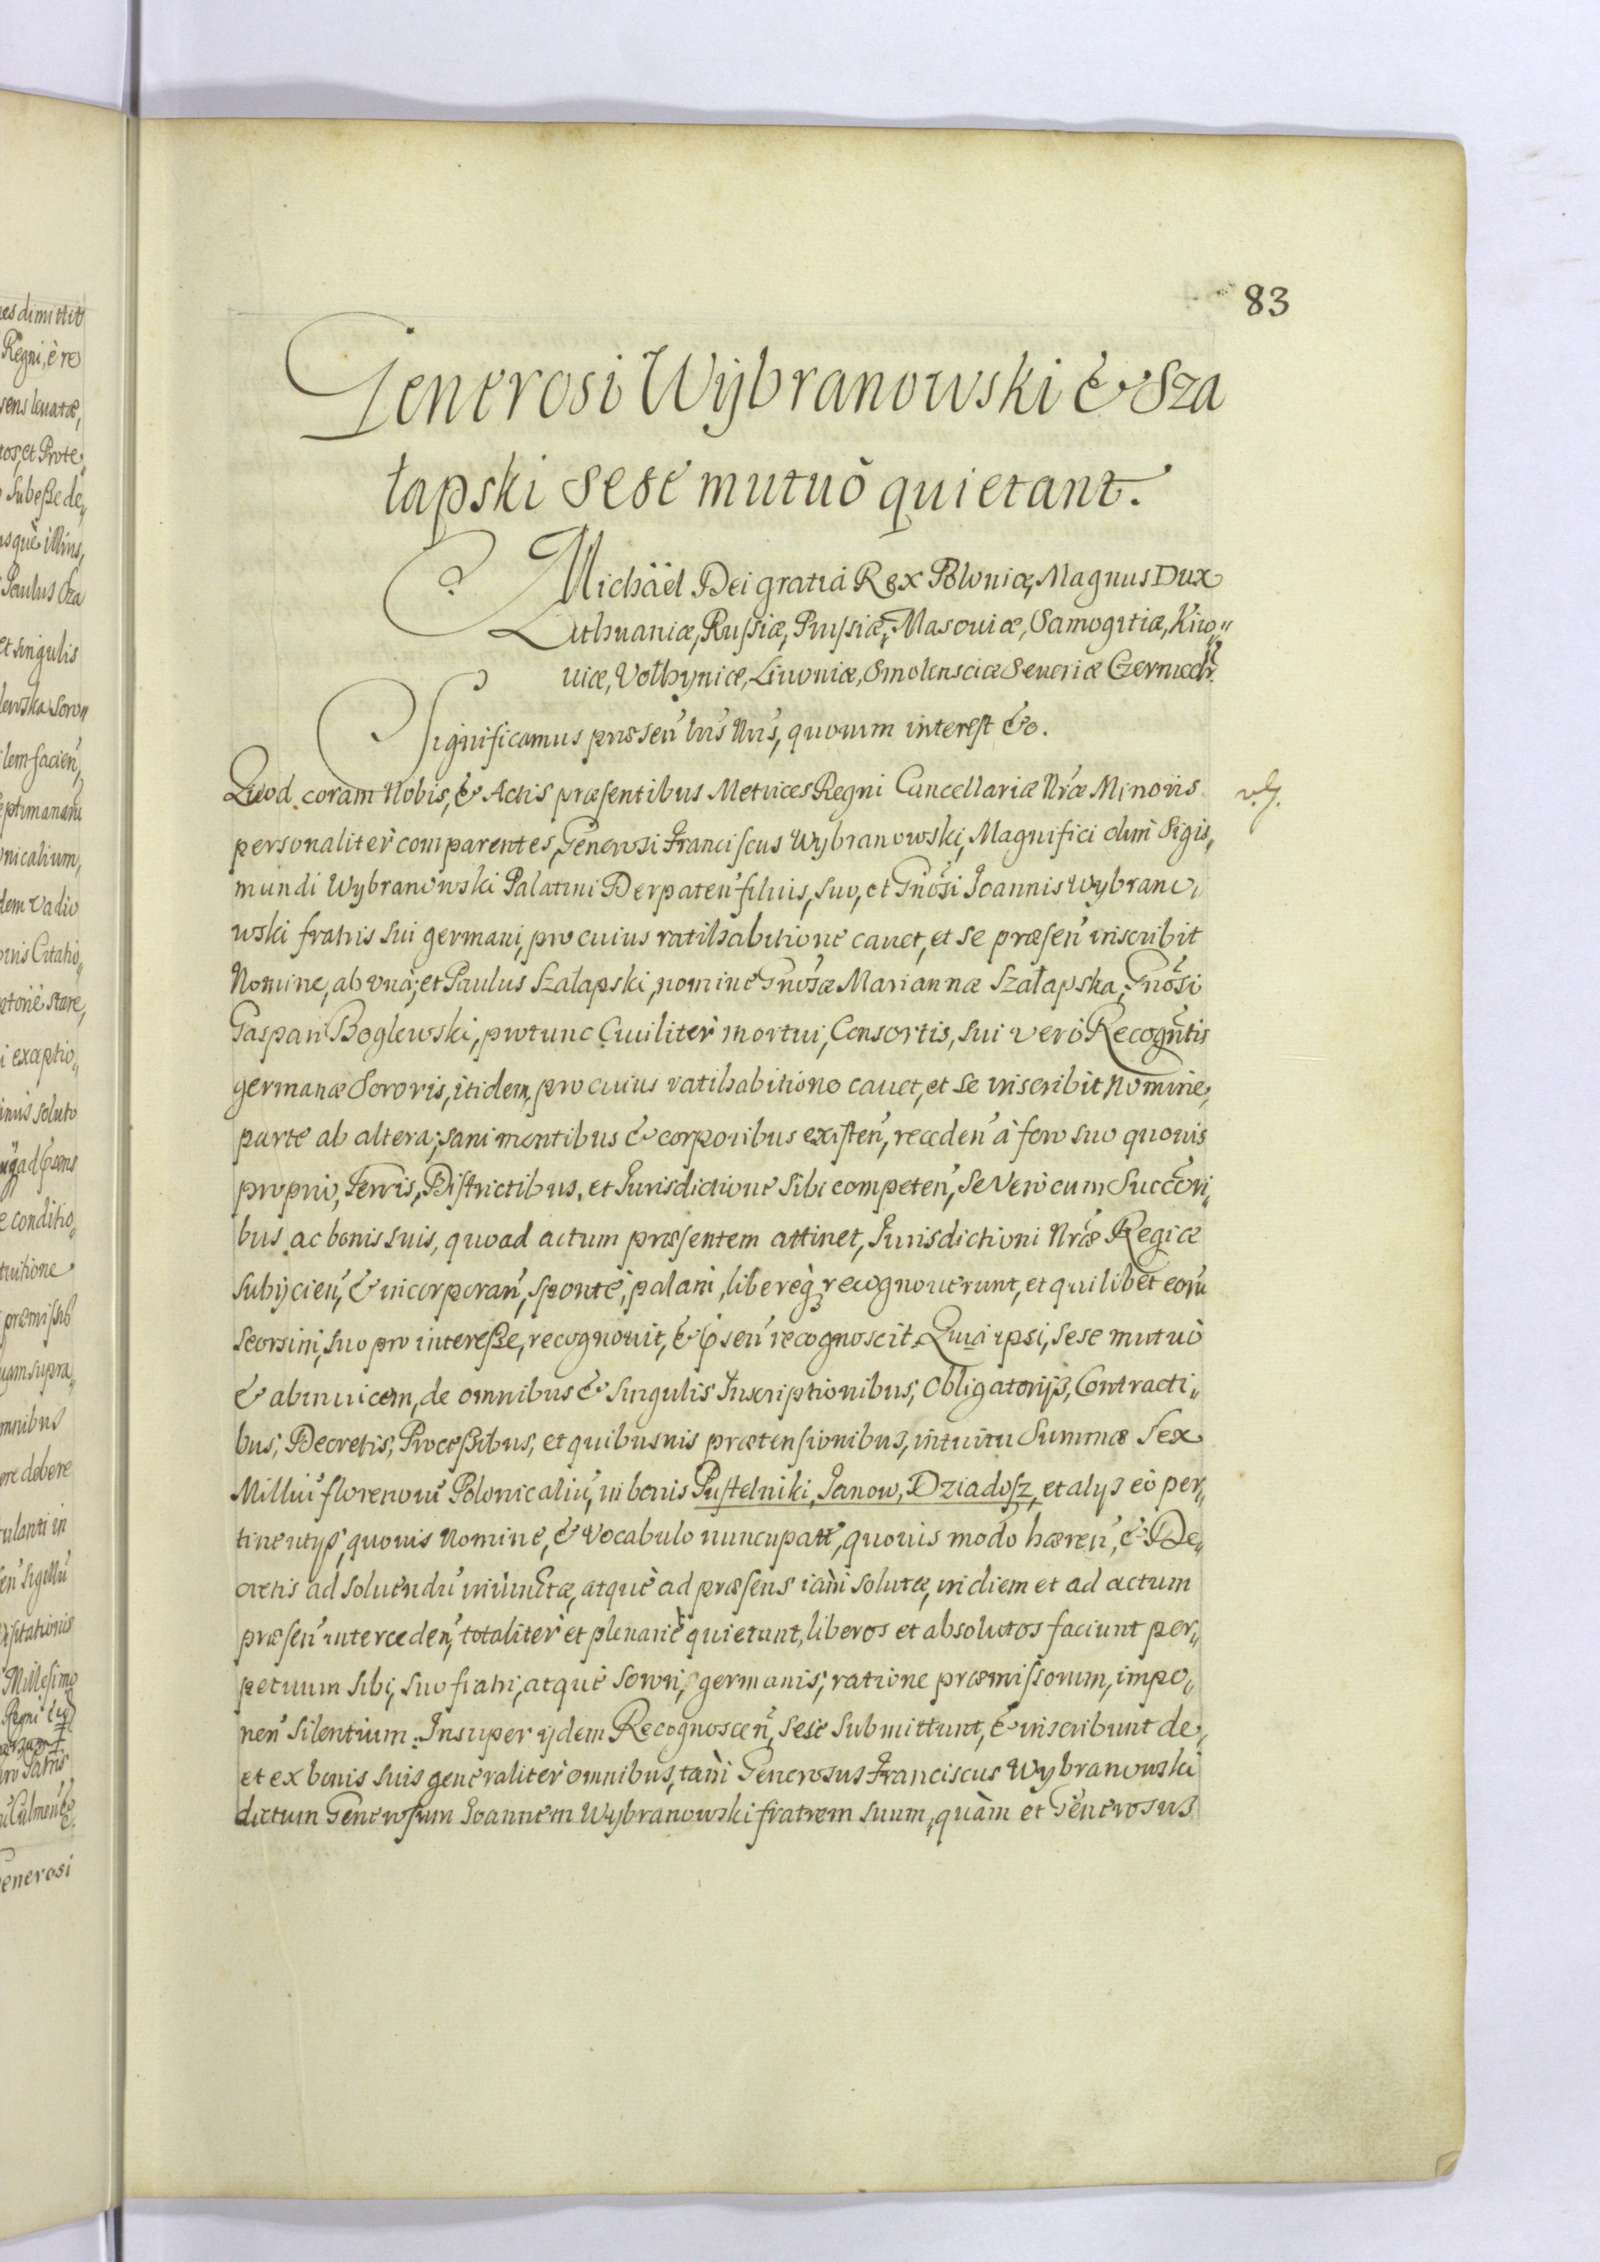 83
Generosi Wÿbranowski & Sza
łapski sese mutuò quietant.
Michäel Dei gratiâ Rex Poloniæ, Magnus Dux
Lithuaniæ, Russiæ, Prussiæ, Masouiæ, Samogitiæ, Kiio„
uiæ, Volhyniæ, Liuoniæ, Smolensciæ Seueriæ Czerniech.
Significamus præsen' bus' Nris', quorum interest &c.
Quod coram Nobis, & Actis præsentibus Metrices Regni Cancellariæ Nræ Minoris
personaliter comparentes, Generosi Franciscus Wybranowski, Magnifici olim Sigis„
mundi Wybranowski Palatini Derpaten' filius, suo, et Gnosi Joannis Wybrano„
wski fratris sui germani, pro cuius ratihabitione cauet, et se præsen' inscribit
Nomine, ab una; et Paulus Szałapski, nomine Gnosæ Mariannæ Szałapska, Gnosi
Gaspari Boglewski, protunc Ciuiliter mortui, Consortis, sui verò Recogntis
germanæ Sororis, itidem, pro cuius ratihabitione cauet, et se inscribit Nomine,
parte ab altera; sani mentibus & corporibus existen', receden' à foro suo quouis
proprio, Terris, Districtibus, et Jurisdictione sibi competen', se vero cum Succori„
bus ac bonis suis, quoad actum præsentem attinet, Jurisdictioni Nræ Regiæ
subijcien', & incorporan', sponte, palam, libereq; recognouerunt, et quilibet eoru
seorsim, suo pro interesse, recognouit, & p̱sen' recognoscit. Quia ipsi, sese mutuò
& abinuicem, de omnibus & singulis Inscriptionibus, Obligatorijs, Contracti„
bus, Decretis, Processibus, et quibusuis prætensionibus, intuitu Summæ Sex
Milliu' florenoru' Polonicaliu', in bonis Pustelniki, Janow, Dziadosz, et alijs eò per„
tinentijs, quouis Nomine, & Vocabulo nuncupatt', quouis modo hæren', & De„
cretis ad soluendu' iniunctæ, atque ad præsens iam solutæ, in diem et ad actum
præsen' interceden', totaliter et plenarie quietant, liberos et absolutos faciunt per„
petuum sibi, suo fratri, atque sorori, germanis, ratione præmissorum, impo„
nen' silentium. Insuper ijdem Recognoscen', sese submittunt, & inscribunt de,
et ex bonis suis generaliter omnibus, tam Generosus Franciscus Wybranowski
dictum Generosum Joannem Wybranowski fratrem suum, quàm et Generosus